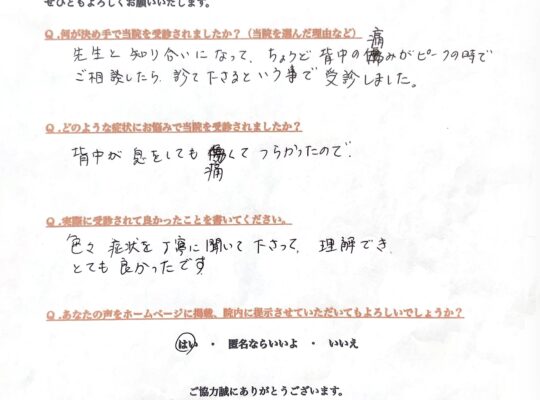 ぜひともよろしくお願いいたします。
Q.何が決め手で当院を受診されましたか?(当院を選んだ理由など)
先生と知り合いになって、ちょうど背中の痛みがピークの時で
ご相談したら、診て下さるという事で受診しました。
Q.どのような症状にお悩みで当院を受診されましたか?
背中が息をしても痛くてつらかったので。
Q.実際に受診されて良かったことを書いてください。
色々症状を丁寧に聞いて下さって、理解でき、
とても良かったです
Q.あなたの声をホームページに掲載、院内に提示させていただいてもよろしいでしょうか?
はい ・ 匿名ならいいよ ・ いいえ
ご協力誠にありがとうございます。